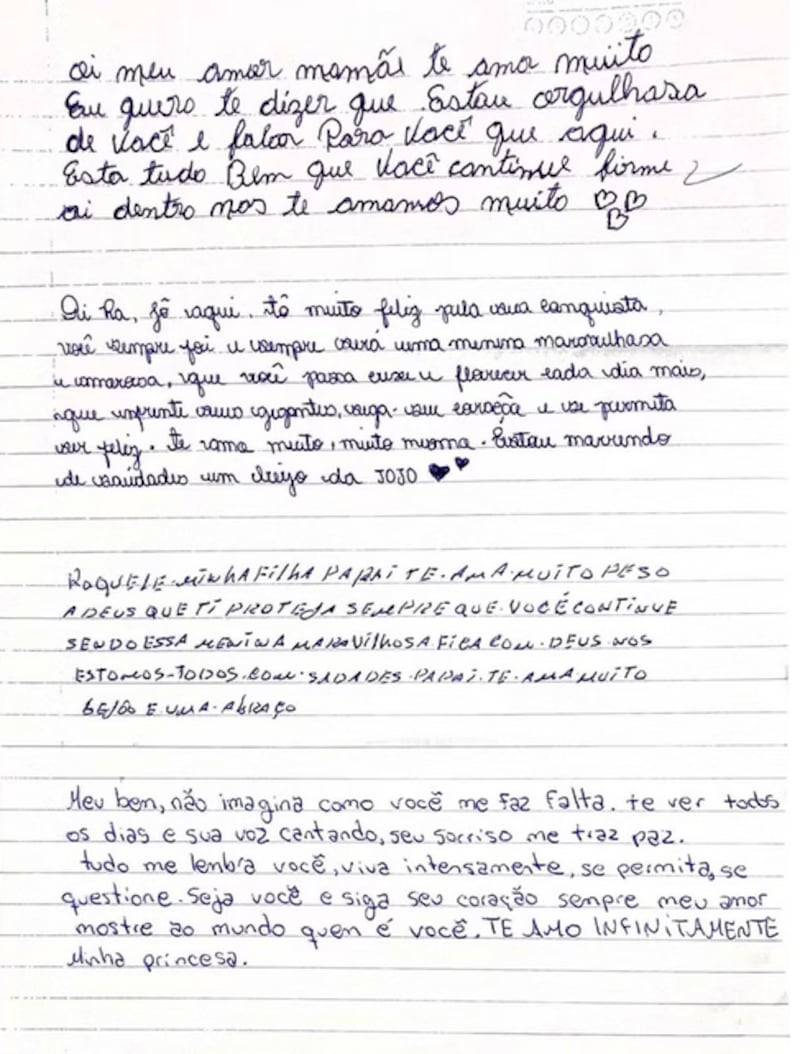 oi meu amor mamãe te ama muito
Eu quero te dizer que Estou orgulhosa
de Você e falar Para Você que aqui.
Esta tudo Bem que Você continue firme
ai dentro nos te amamos muito
Oi Ra, Jô aqui. tô muito feliz pela sua conquista,
você sempre foi e sempre será uma menina maravilhosa
e amorosa, que você possa cresce e florecer cada dia mais,
que enfrente seus gigantes, siga seu coração e se permita
ser feliz. te amo muito, muito mesmo. Estou morrendo
de saudades um beijo da JOJO
RAQUELE MINHA FILHA PAPAI TE AMA MUITO PESO
A DEUS QUE TI PROTEJA SEMPRE QUE VOCÊ CONTINUE
SENDO ESSA MENINA MARAVILHOSA FICA COM DEUS NOS
ESTOMOS TODOS COM SADADES PAPAI TE AMA MUITO
BEJÕO E UMA ABRAÇO
Meu bem, não imagina como você me faz falta. te ver todos
os dias e sua voz cantando, seu sorriso me traz paz.
tudo me lembra você, viva intensamente, se permita, se
questione. Seja você e siga seu coração sempre meu amor
mostre ao mundo quem é você. TE AMO INFINITAMENTE
Minha princesa.